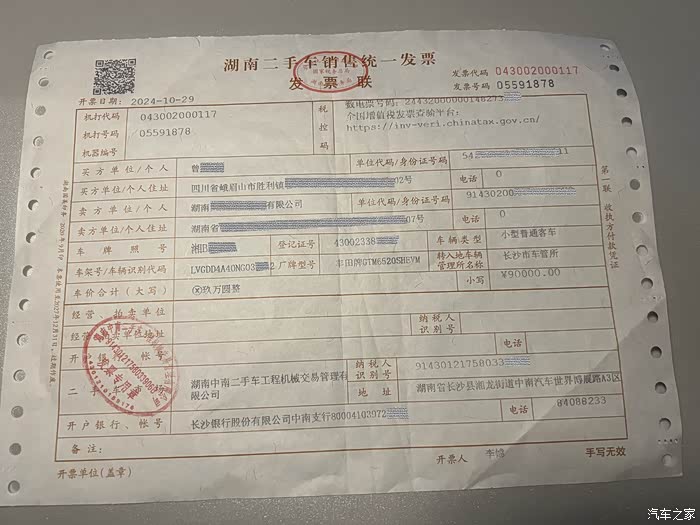 湖南二手车销售统一发票
发票联
发票代码 043002000117
发票号码 05591878
开票日期： 2024-10-29
机打代码 043002000117
机打号码 05591878
机器编号
税控码
数电票号码：
全国增值税发票查验平台：
https://inv-veri.chinatax.gov.cn/
买方单位/个人 曾 单位代码/身份证号码
买方单位/个人住址 四川省峨眉山市胜利镇 02号 电话 0
卖方单位/个人 湖南 有限公司 单位代码/身份证号码 91430200
卖方单位/个人住址 湖南省 07号 电话 0
车牌照号 湘B 登记证号 43002338 车辆类型 小型普通客车
车架号/车辆识别代码 厂牌型号 转入地车辆管理所名称 长沙市车管所
车价合计（大写） ⊗玖万圆整 小写 ¥90000.00
经营、拍卖单位
经营、拍卖单位地址 纳税人识别号
开户银行、账号 电话
二手 湖南中南二手车工程机械交易管理有限公司 纳税人识别号 91430121758033
地址 湖南省长沙县湘龙街道中南汽车世界鸿展路A3区
开户银行、账号 长沙银行股份有限公司中南支行80004103972 电话 84088233
备注：
开票单位（盖章） 开票人 手写无效
第一联 收执方付款凭证
汽车之家